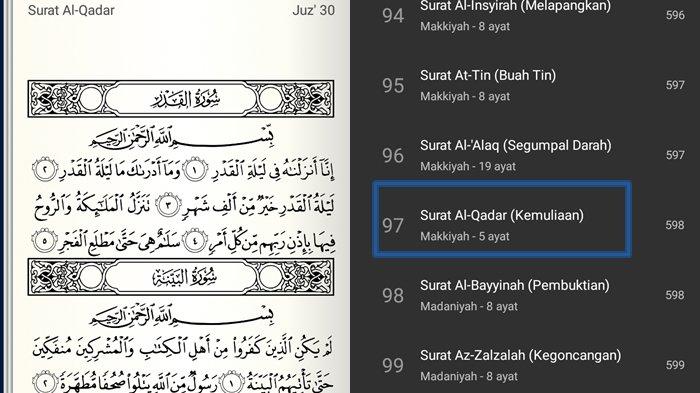 Surat Al-Qadar
Juz' 30
سُورَةُ القَدْرِ
بِسْمِ اللَّهِ الرَّحْمَٰنِ الرَّحِيمِ
إِنَّا أَنزَلْنَاهُ فِي لَيْلَةِ الْقَدْرِ ١ وَمَا أَدْرَاكَ مَا لَيْلَةُ الْقَدْرِ ٢
لَيْلَةُ الْقَدْرِ خَيْرٌ مِّنْ أَلْفِ شَهْرٍ ٣ تَنَزَّلُ الْمَلَائِكَةُ وَالرُّوحُ
فِيهَا بِإِذْنِ رَبِّهِم مِّن كُلِّ أَمْرٍ ٤ سَلَامٌ هِيَ حَتَّىٰ مَطْلَعِ الْفَجْرِ ٥
سُورَةُ البَيِّنَةِ
بِسْمِ اللَّهِ الرَّحْمَٰنِ الرَّحِيمِ
لَمْ يَكُنِ الَّذِينَ كَفَرُوا مِنْ أَهْلِ الْكِتَابِ وَالْمُشْرِكِينَ مُنفَكِّينَ
حَتَّىٰ تَأْتِيَهُمُ الْبَيِّنَةُ ١ رَسُولٌ مِّنَ اللَّهِ يَتْلُو صُحُفًا مُّطَهَّرَةً ٢
94
Surat Al-Insyirah (Melapangkan)
Makkiyah - 8 ayat
596
95
Surat At-Tin (Buah Tin)
Makkiyah - 8 ayat
597
96
Surat Al-'Alaq (Segumpal Darah)
Makkiyah - 19 ayat
597
97
Surat Al-Qadar (Kemuliaan)
Makkiyah - 5 ayat
598
98
Surat Al-Bayyinah (Pembuktian)
Madaniyah - 8 ayat
598
99
Surat Az-Zalzalah (Kegoncangan)
Madaniyah - 8 ayat
599